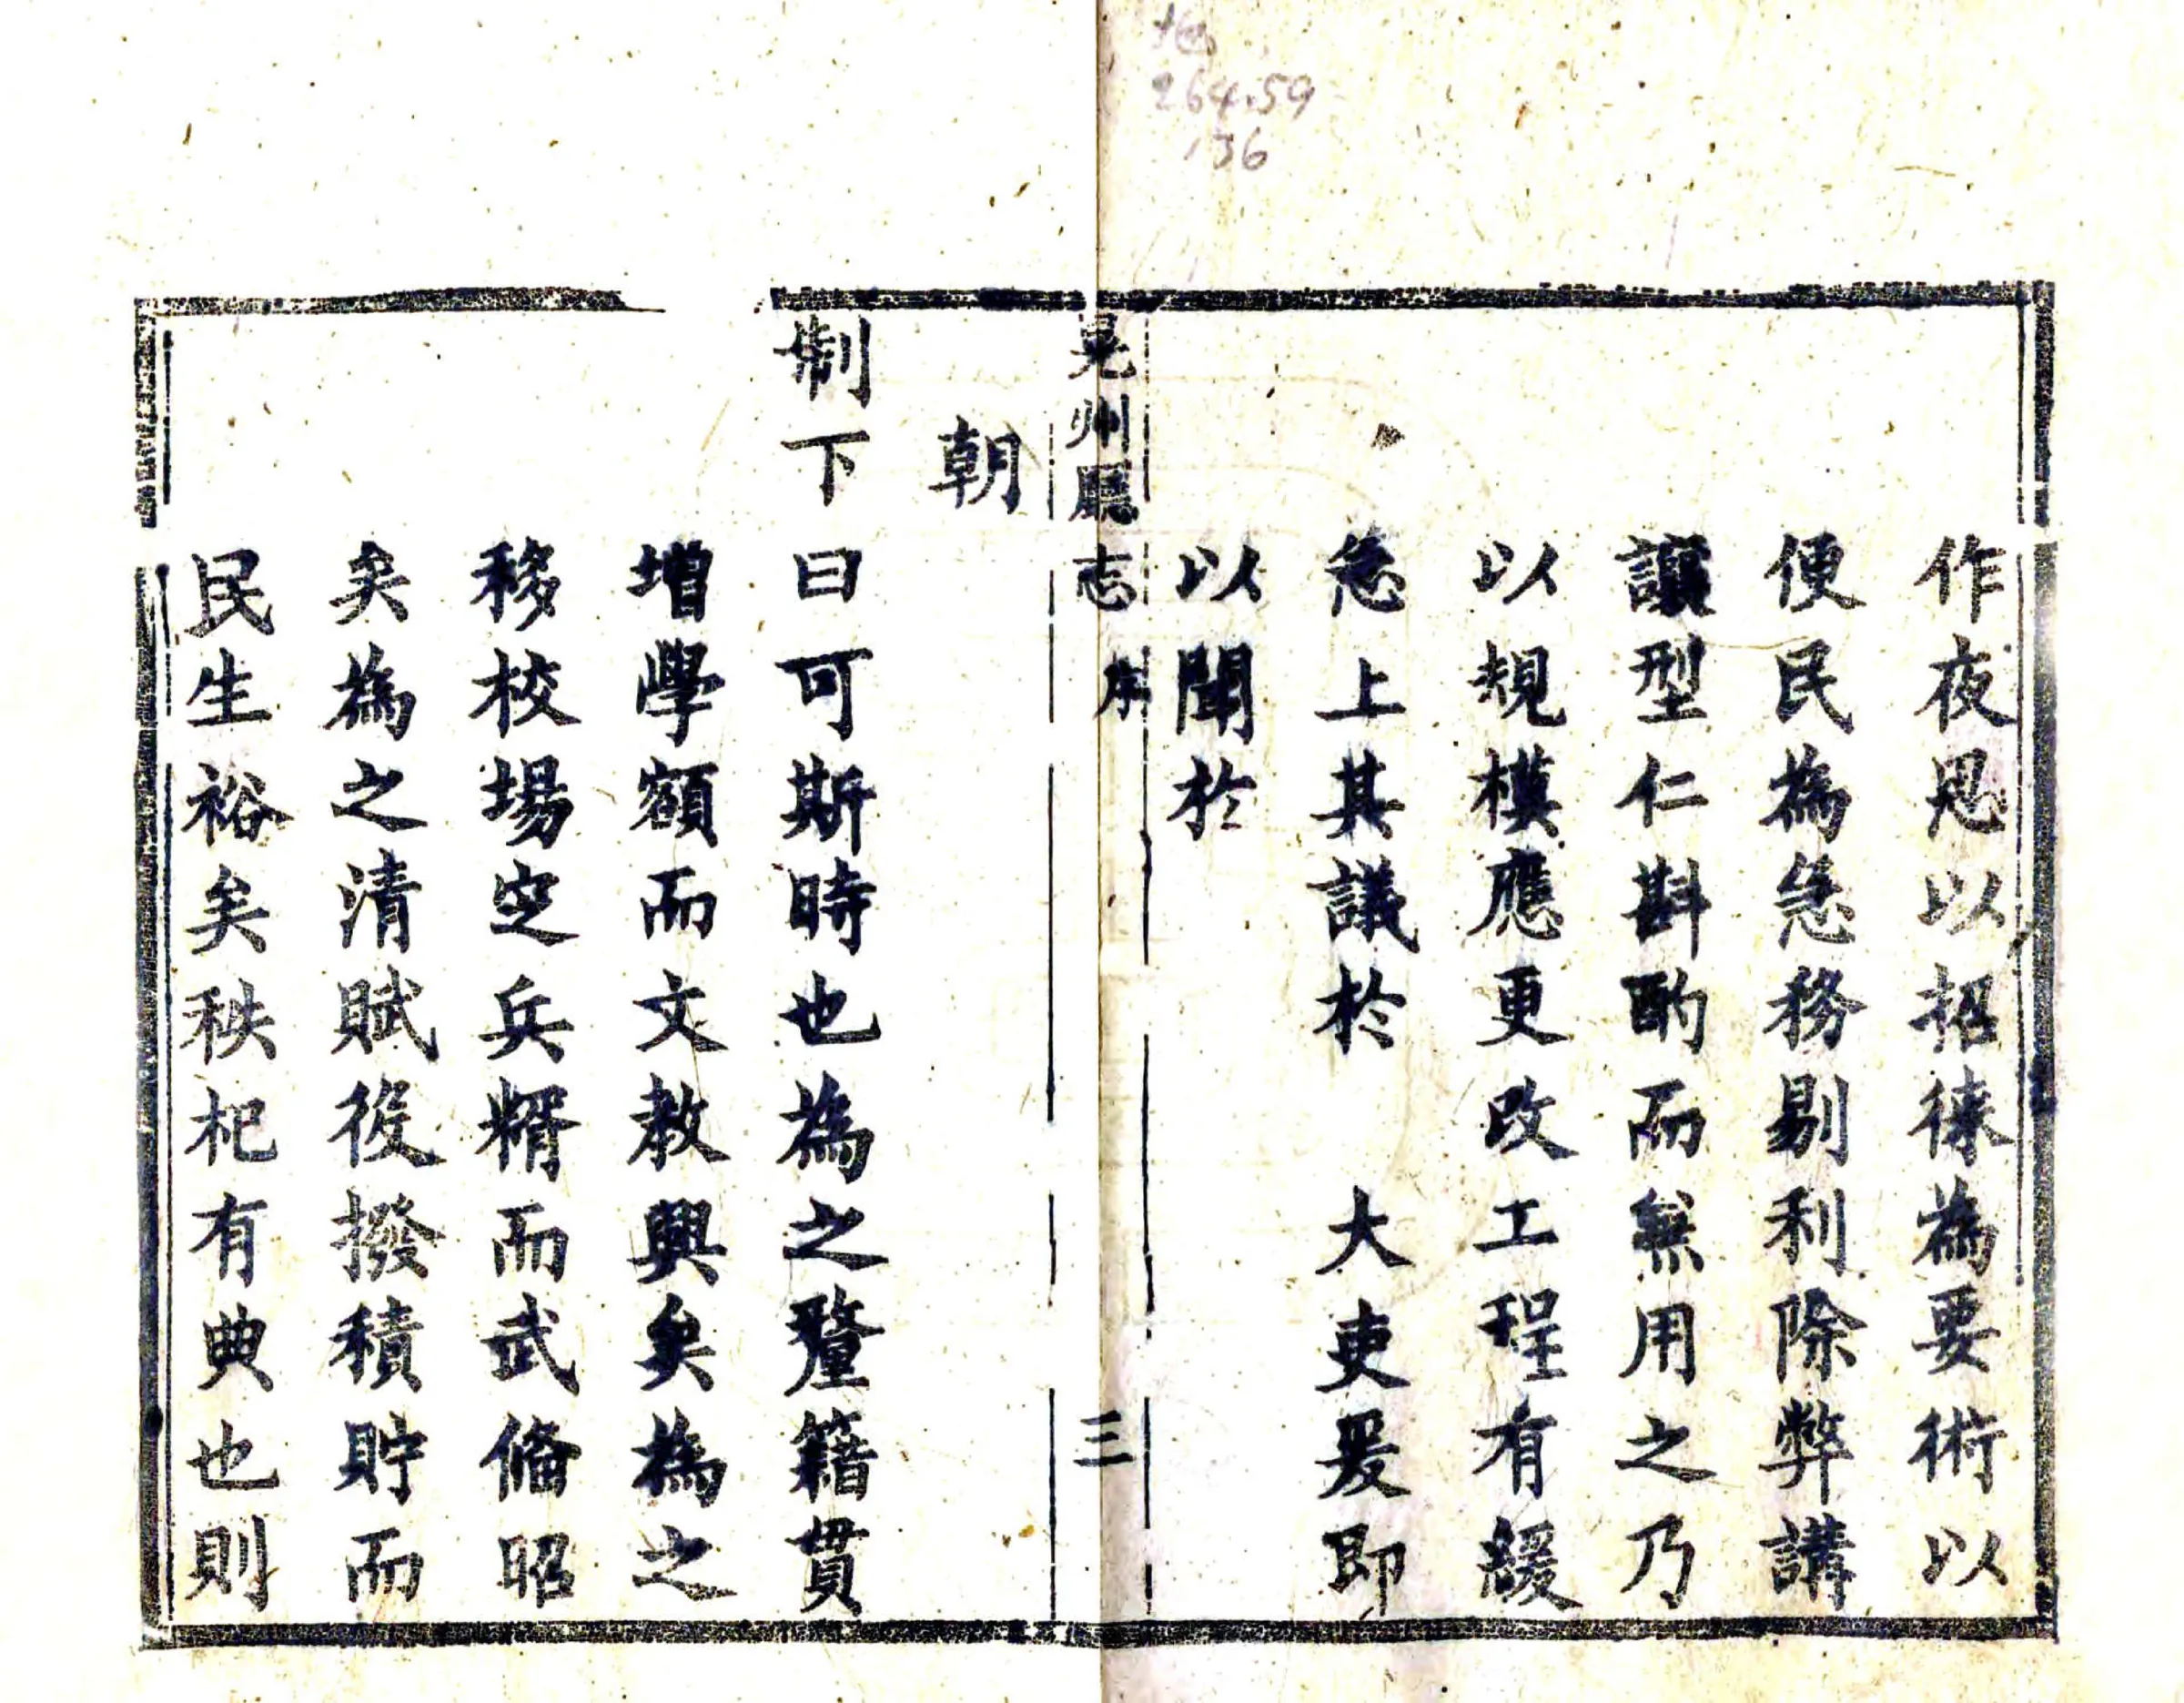 264.59
136
作夜思以招徠為要術以
便民為急務剔利除弊講
讓型仁斟酌而無用之乃
以規模應更改工程有緩
急上其議於 大吏爰即
以聞於
晃州廳志 序 三
朝
制下曰可斯時也為之釐籍貫
增學額而文教興矣為之
移校場定兵糈而武俻昭
矣為之清賦役撥積貯而
民生裕矣秩祀有典也則